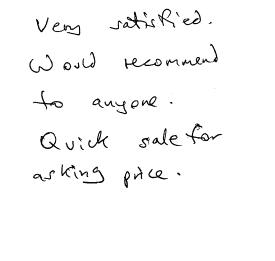 Very satisfied.
Would recommend
to anyone.
Quick sale for
asking price.